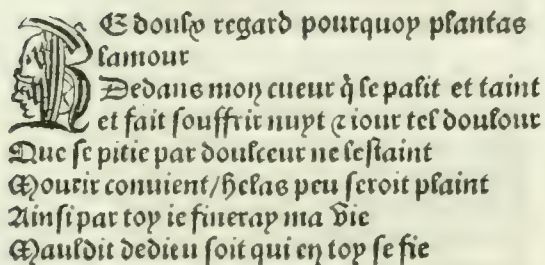 RE doulx regard pourquoy plantas
lamour
Dedans mon cueur q̃ se palit et taint
et fait souffrir nuyt ⁊ iour tel doulour
Que se pitie par doulceur ne lestaint
Mourir conuient/helas peu seroit plaint
Ainsi par toy ie fineray ma vie
Mauldit dedieu soit qui en toy se fie